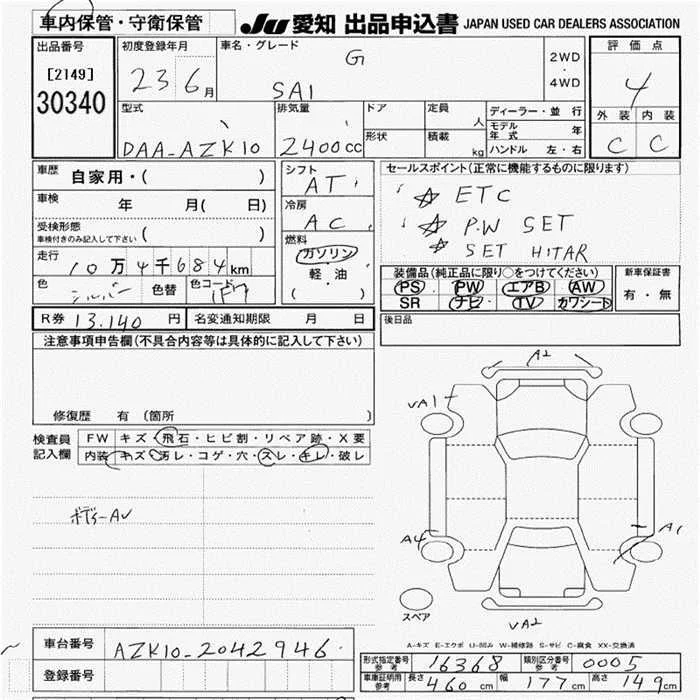 車内保管・守衛保管
JU 愛知 出品申込書 JAPAN USED CAR DEALERS ASSOCIATION
出品番号 初度登録年月 車名・グレード G 2WD・4WD 評価点
[2149] 23 6月 SAI 4
30340
型式 排気量 ドア 定員 人 ディーラー・並行 外装 内装
DAA-AZK10 2400cc 形状 積載 kg モデル年式 年 ハンドル 左・右 C C
車歴 自家用・( ) シフト AT セールスポイント(正常に機能するものに限ります)
車検 年 月( 日) 冷房 AC ☆ ETC
受検形態 ( ) ☆ P.W SET
車検付きのみ記入して下さい 燃料 ☆ SET HITAR
走行 10万4千684km ガソリン
軽・油
( )
色 シルバー 色替 色コード 1F7
装備品(純正品に限り○をつけてください) 新車保証書
PS PW エアB AW 有・無
SR ナビ TV カワシート
R券 13.140円 名変通知期限 月 日 後日品
注意事項申告欄(不具合内容等は具体的に記入して下さい)
修復歴 有(箇所 )
検査員記入欄 FW キズ・飛石・ヒビ割・リペア跡・X要
内装 キズ・汚レ・コゲ・穴・スレ・キレ・破レ
ボデーAU
A2
UA1
A4
A1
UA2
スペア
A-キズ E-エクボ U-凹み W-補修跡 S-サビ C-腐食 XX-交換済
車台番号 AZK10-2042946
登録番号
形式指定番号 参考 16368 類別区分番号 参考 0005
車庫証明用 参考 長さ 460cm 幅 177cm 高さ 149cm